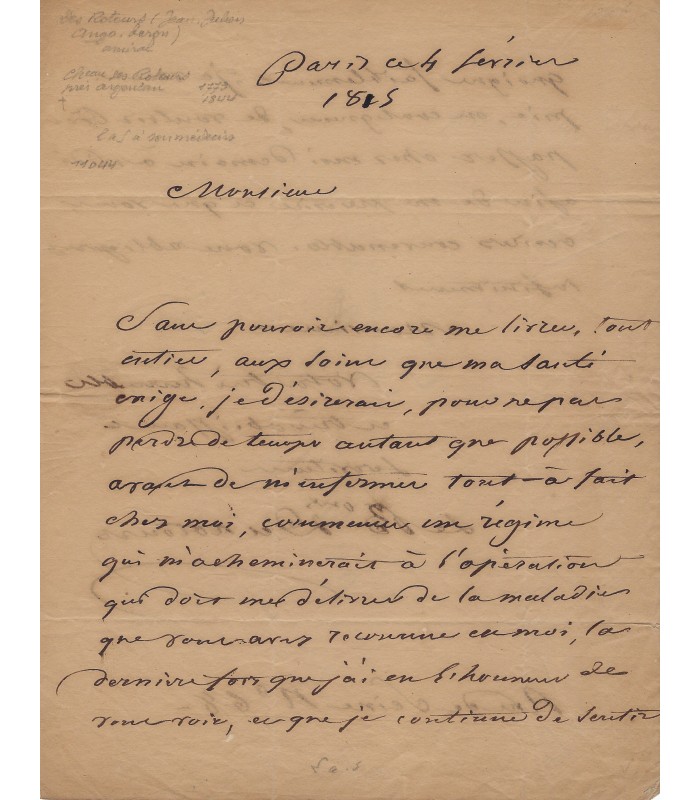 Des Rotours (Jean-Julien
Ango, baron)
amiral
chateau des Rotours
près argentan 1773
† 1844
L a S à son médecin
Paris ce 4 février
1815
Monsieur
Sans pouvoir encore me livrer, tout
entier, aux soins que ma santé
exige, je désirerais, pour ne pas
perdre de temps autant que possible,
avant de m'enfermer tout-à fait
chez moi, commencer un régime
qui m'acheminerait à l'opération
qui doit me délivrer de la maladie
que vous avez reconnue en moi, la
dernière fois que j'ai eu l'honneur de
vous voir, et que je continue de sentir